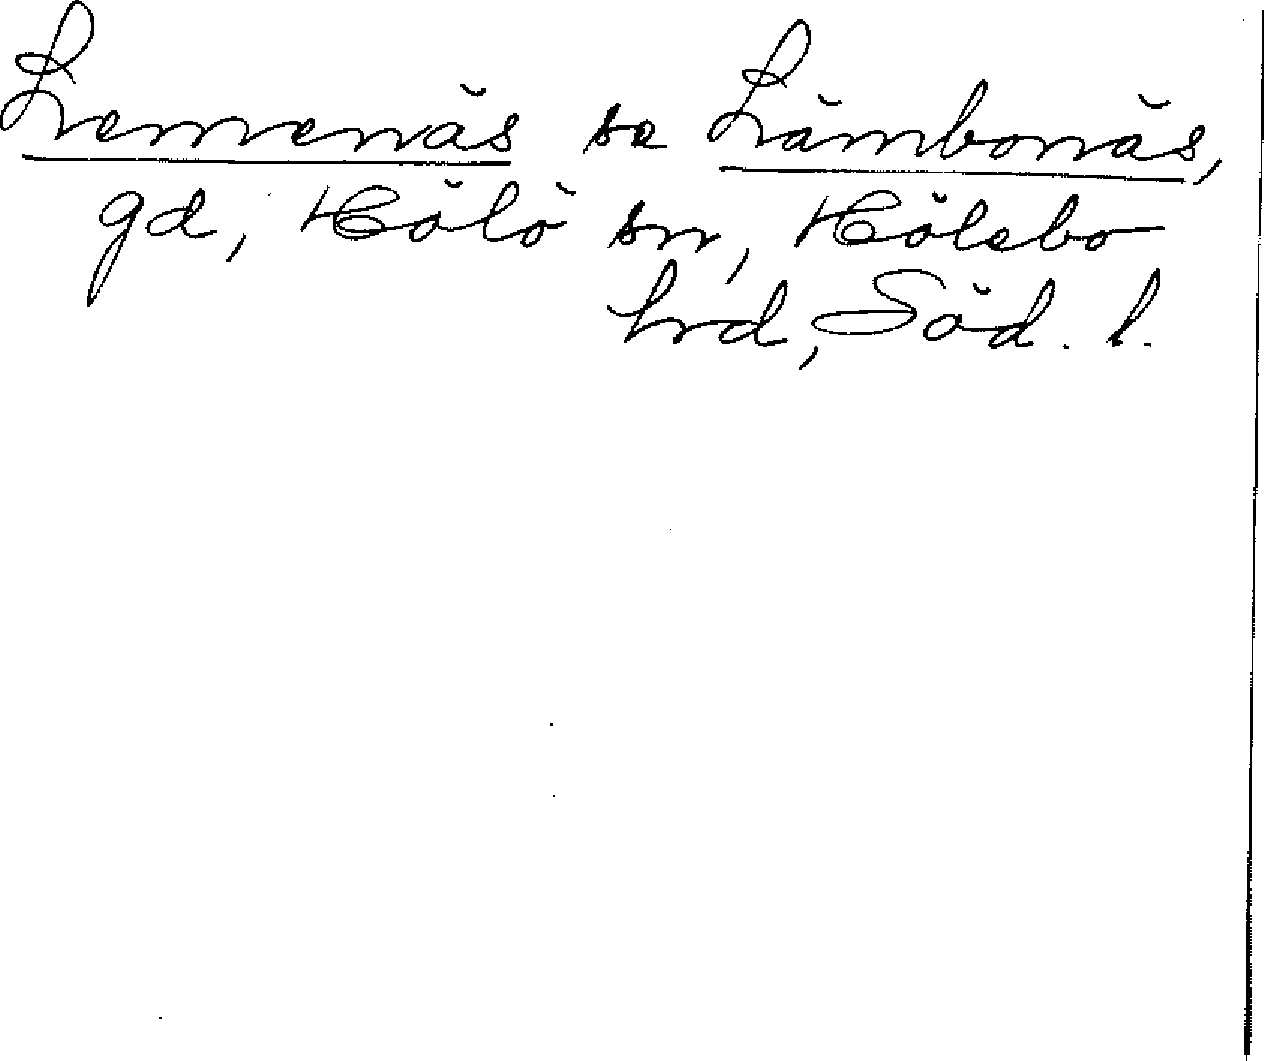 Lemenäs se Lämbonäs,
gd, Hölö sn, Hölebo
hd, Söd. l.